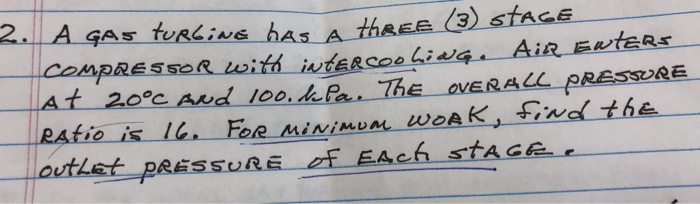 2. A GAS TURBINE HAS A THREE (3) STAGE
COMPRESSOR WITH INTERCOOLING. AIR ENTERS
At 20°C AND 100. kPa. THE OVERALL PRESSURE
RAtio is 16. FOR MINIMUM WORK, find thE
OUTLET PRESSURE of EACh STAGE.